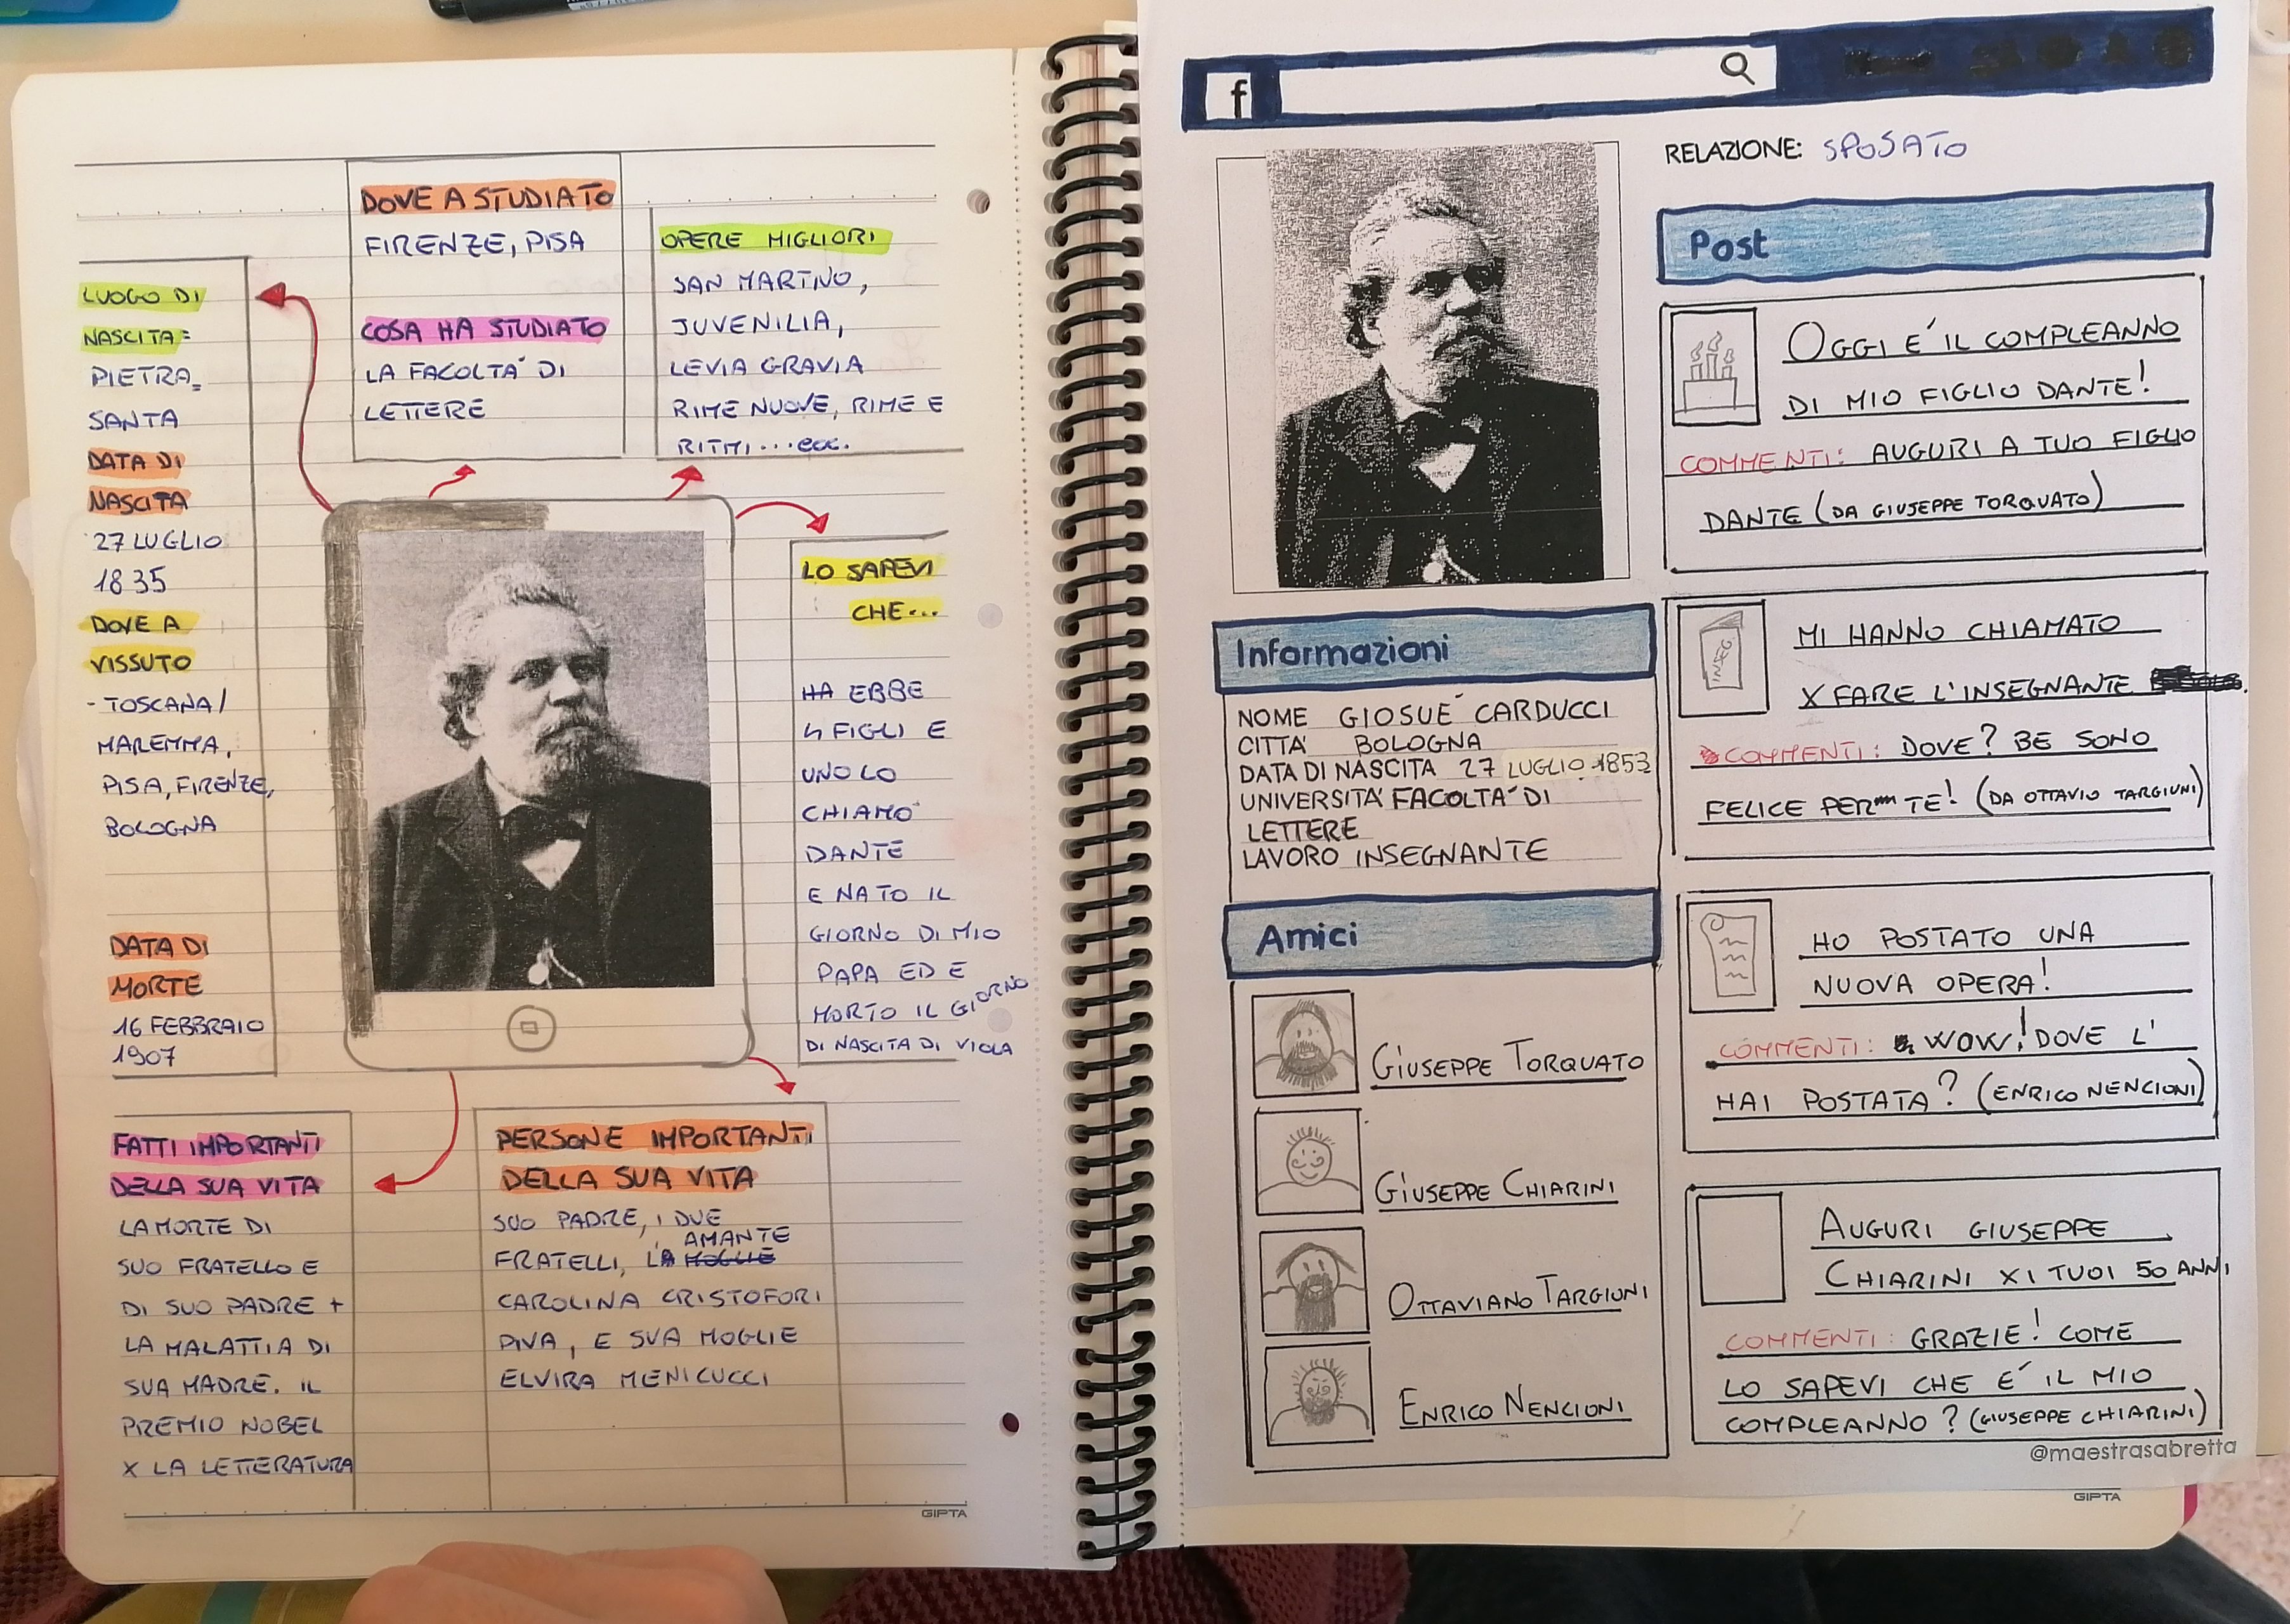 DOVE A STUDIATO
FIRENZE, PISA
COSA HA STUDIATO
LA FACOLTA' DI
LETTERE
OPERE MIGLIORI
SAN MARTINO,
JUVENILIA,
LEVIA GRAVIA
RIME NUOVE, RIME E
RITMI...ecc.
LUOGO DI
NASCITA:
PIETRA=
SANTA
DATA DI
NASCITA
27 LUGLIO
1835
DOVE A
VISSUTO
- TOSCANA/
MAREMMA,
PISA, FIRENZE,
BOLOGNA
DATA DI
MORTE
16 FEBBRAIO
1907
LO SAPEVI
CHE...
HA EBBE
4 FIGLI E
UNO LO
CHIAMO'
DANTE
E NATO IL
GIORNO DI MIO
PAPA ED E
MORTO IL GIORNO
DI NASCITA DI VIOLA
FATTI IMPORTANTI
DELLA SUA VITA
LA MORTE DI
SUO FRATELLO E
DI SUO PADRE +
LA MALATTIA DI
SUA MADRE. IL
PREMIO NOBEL
X LA LETTERATURA
PERSONE IMPORTANTI
DELLA SUA VITA
SUO PADRE, I DUE
AMANTE
FRATELLI, LA MOGLIE
CAROLINA CRISTOFORI
PIVA, E SUA MOGLIE
ELVIRA MENICUCCI
GIPTA
f
RELAZIONE: SPOSATO
Informazioni
NOME GIOSUE' CARDUCCI
CITTA' BOLOGNA
DATA DI NASCITA 27 LUGLIO 1853
UNIVERSITA' FACOLTA' DI
LETTERE
LAVORO INSEGNANTE
Amici
GIUSEPPE TORQUATO
GIUSEPPE CHIARINI
OTTAVIANO TARGIONI
ENRICO NENCIONI
Post
OGGI E' IL COMPLEANNO
DI MIO FIGLIO DANTE!
COMMENTI: AUGURI A TUO FIGLIO
DANTE (DA GIUSEPPE TORQUATO)
INSEG
MI HANNO CHIAMATO
X FARE L'INSEGNANTE
COMMENTI: DOVE? BE SONO
FELICE PER TE! (DA OTTAVIO TARGIUNI)
HO POSTATO UNA
NUOVA OPERA!
COMMENTI: WOW! DOVE L'
HAI POSTATA? (ENRICO NENCIONI)
AUGURI GIUSEPPE
CHIARINI X I TUOI 50 ANNI
COMMENTI: GRAZIE! COME
LO SAPEVI CHE E' IL MIO
COMPLEANNO? (GIUSEPPE CHIARINI)
@maestrasabretta
GIPTA